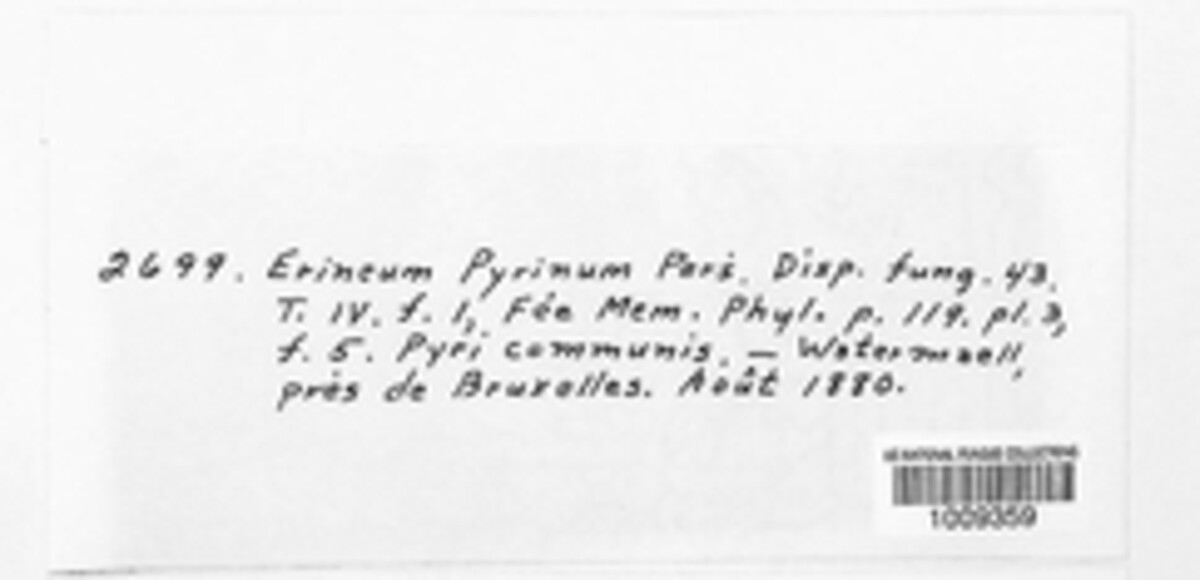 2699. Erineum Pyrinum Pers. Disp. fung. 43.
T. IV. f. 1, Fée Mem. Phyl. p. 119. pl. 3,
f. 5. Pyri communis. — Watermaell,
près de Bruxelles. Août 1880.
US NATIONAL FUNGUS COLLECTIONS
1009359